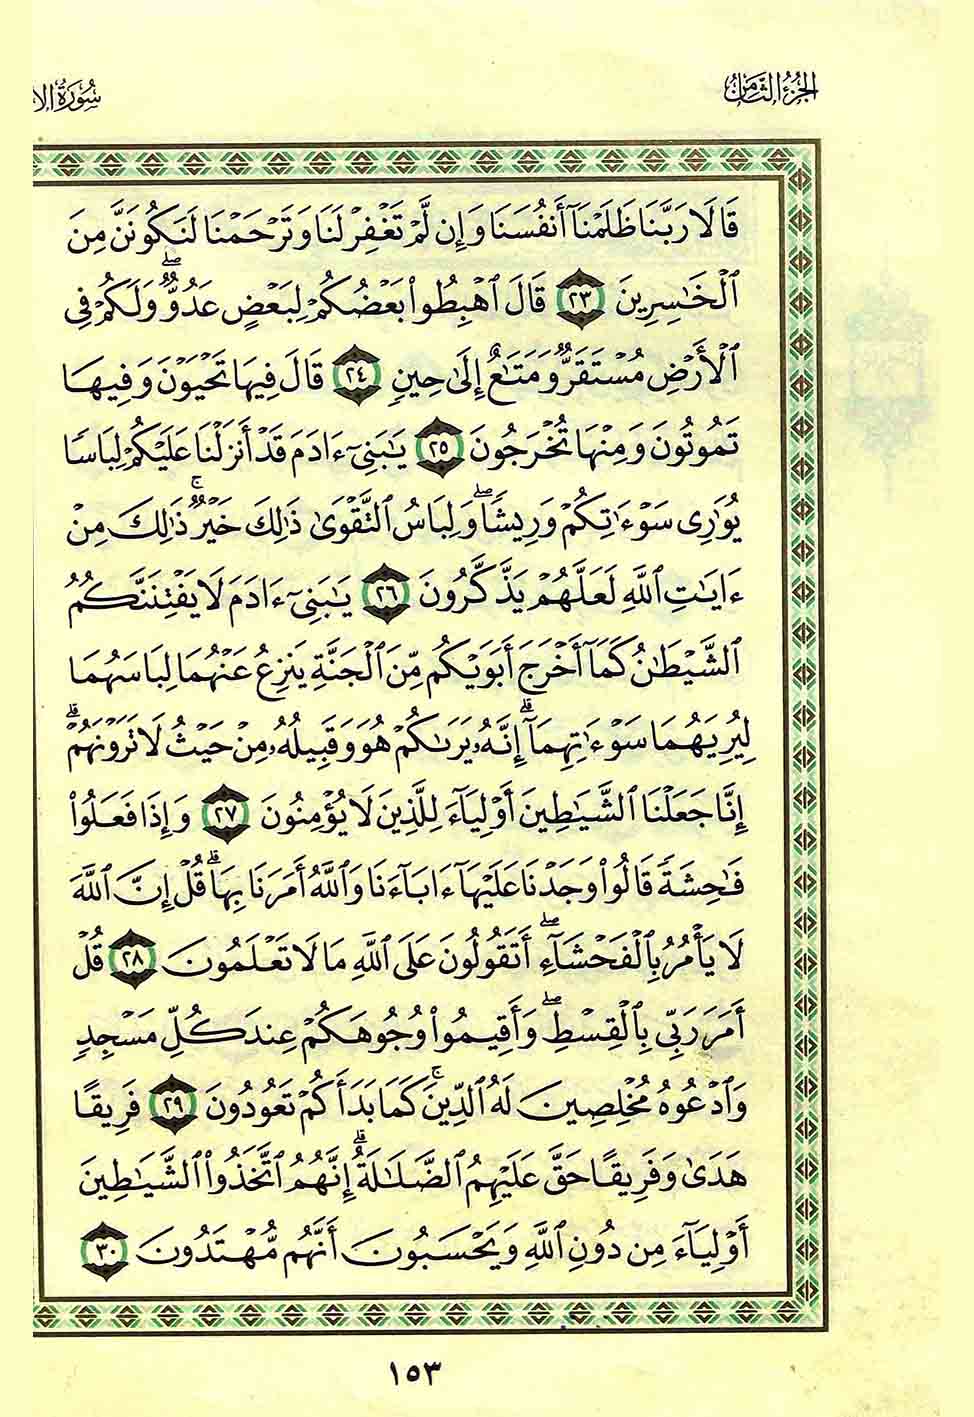 الجزء الثامن
سورة الا
قَالَا رَبَّنَا ظَلَمْنَآ أَنفُسَنَا وَإِن لَّمْ تَغْفِرْ لَنَا وَتَرْحَمْنَا لَنَكُونَنَّ مِنَ
ٱلْخَٰسِرِينَ ٢٣ قَالَ ٱهْبِطُوا۟ بَعْضُكُمْ لِبَعْضٍ عَدُوٌّ ۖ وَلَكُمْ فِى
ٱلْأَرْضِ مُسْتَقَرٌّ وَمَتَٰعٌ إِلَىٰ حِينٍ ٢٤ قَالَ فِيهَا تَحْيَوْنَ وَفِيهَا
تَمُوتُونَ وَمِنْهَا تُخْرَجُونَ ٢٥ يَٰبَنِىٓ ءَادَمَ قَدْ أَنزَلْنَا عَلَيْكُمْ لِبَاسًا
يُوَٰرِى سَوْءَٰتِكُمْ وَرِيشًا ۖ وَلِبَاسُ ٱلتَّقْوَىٰ ذَٰلِكَ خَيْرٌ ۚ ذَٰلِكَ مِنْ
ءَايَٰتِ ٱللَّهِ لَعَلَّهُمْ يَذَّكَّرُونَ ٢٦ يَٰبَنِىٓ ءَادَمَ لَا يَفْتِنَنَّكُمُ
ٱلشَّيْطَٰنُ كَمَآ أَخْرَجَ أَبَوَيْكُم مِّنَ ٱلْجَنَّةِ يَنزِعُ عَنْهُمَا لِبَاسَهُمَا
لِيُرِيَهُمَا سَوْءَٰتِهِمَآ ۗ إِنَّهُۥ يَرَىٰكُمْ هُوَ وَقَبِيلُهُۥ مِنْ حَيْثُ لَا تَرَوْنَهُمْ ۗ
إِنَّا جَعَلْنَا ٱلشَّيَٰطِينَ أَوْلِيَآءَ لِلَّذِينَ لَا يُؤْمِنُونَ ٢٧ وَإِذَا فَعَلُوا۟
فَٰحِشَةً قَالُوا۟ وَجَدْنَا عَلَيْهَآ ءَابَآءَنَا وَٱللَّهُ أَمَرَنَا بِهَا ۗ قُلْ إِنَّ ٱللَّهَ
لَا يَأْمُرُ بِٱلْفَحْشَآءِ ۖ أَتَقُولُونَ عَلَى ٱللَّهِ مَا لَا تَعْلَمُونَ ٢٨ قُلْ
أَمَرَ رَبِّى بِٱلْقِسْطِ ۖ وَأَقِيمُوا۟ وُجُوهَكُمْ عِندَ كُلِّ مَسْجِدٍ
وَٱدْعُوهُ مُخْلِصِينَ لَهُ ٱلدِّينَ ۚ كَمَا بَدَأَكُمْ تَعُودُونَ ٢٩ فَرِيقًا
هَدَىٰ وَفَرِيقًا حَقَّ عَلَيْهِمُ ٱلضَّلَٰلَةُ ۗ إِنَّهُمُ ٱتَّخَذُوا۟ ٱلشَّيَٰطِينَ
أَوْلِيَآءَ مِن دُونِ ٱللَّهِ وَيَحْسَبُونَ أَنَّهُم مُّهْتَدُونَ ٣٠
١٥٣